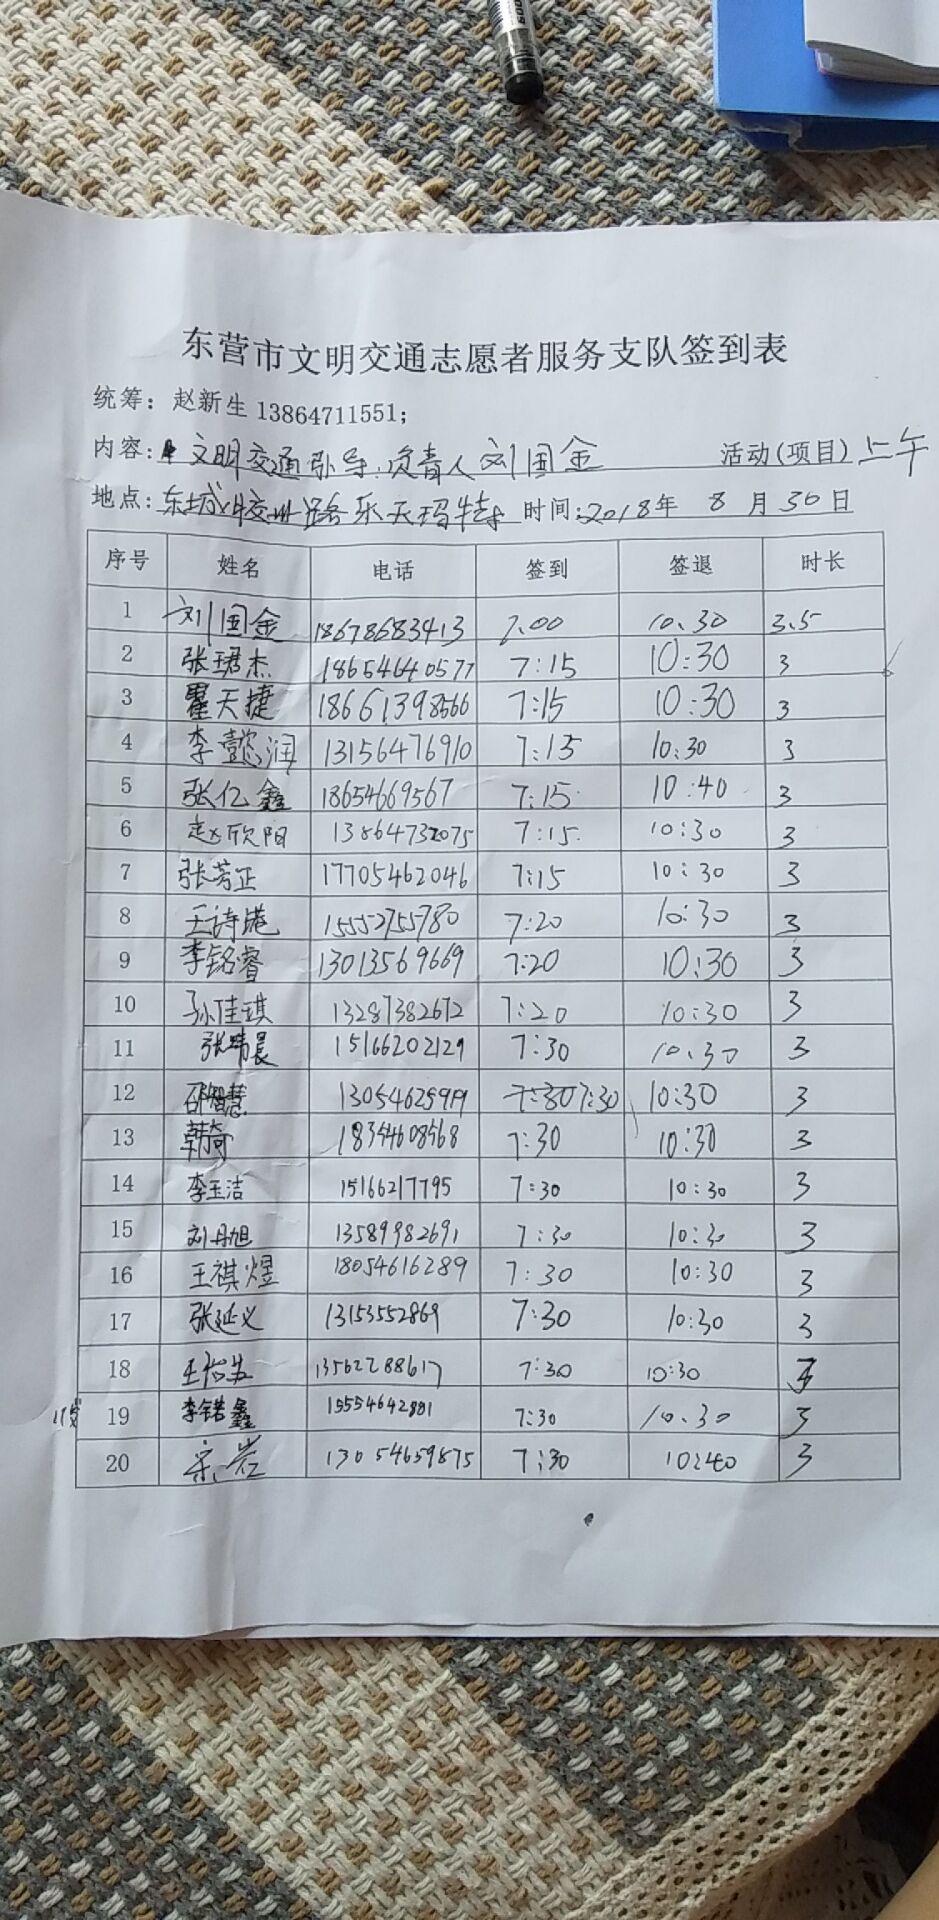 东营市文明交通志愿者服务支队签到表
统筹：赵新生 13864711551；
内容：文明交通引导.负责人刘国金 活动(项目)上午
地点：东城胶州路乐天玛特 时间:2018年 8 月 30 日
序号 姓名 电话 签到 签退 时长
1 刘国金 18678683413 7.00 10.30 3.5
2 张珺杰 18654640577 7:15 10:30 3
3 翟天捷 18661398566 7:15 10:30 3
4 李懿润 13156476910 7:15 10:30 3
5 张亿鑫 18654669567 7:15 10:40 3
6 赵欣阳 13864732075 7:15 10:30 3
7 张芳正 17705462046 7:15 10:30 3
8 王诗 15552755780 7:20 10:30 3
9 李铭睿 13013569669 7:20 10:30 3
10 孙佳琪 13287382672 7:20 10:30 3
11 张晴晨 15166202129 7:30 10.30 3
12 邵智慧 7:30 7:30 10:30 3
13 韩奇 18354608568 7:30 10:30 3
14 李玉洁 15166217795 7:30 10:30 3
15 刘丹旭 13589982691 7:30 10:30 3
16 王祺煜 18054616289 7:30 10:30 3
17 张延义 13153552869 7:30 10:30 3
18 王 13562288617 7:30 10:30 3
19 李锘鑫 15554642881 7:30 10.30 3
20 宋岩 13054659875 7:30 10:40 3